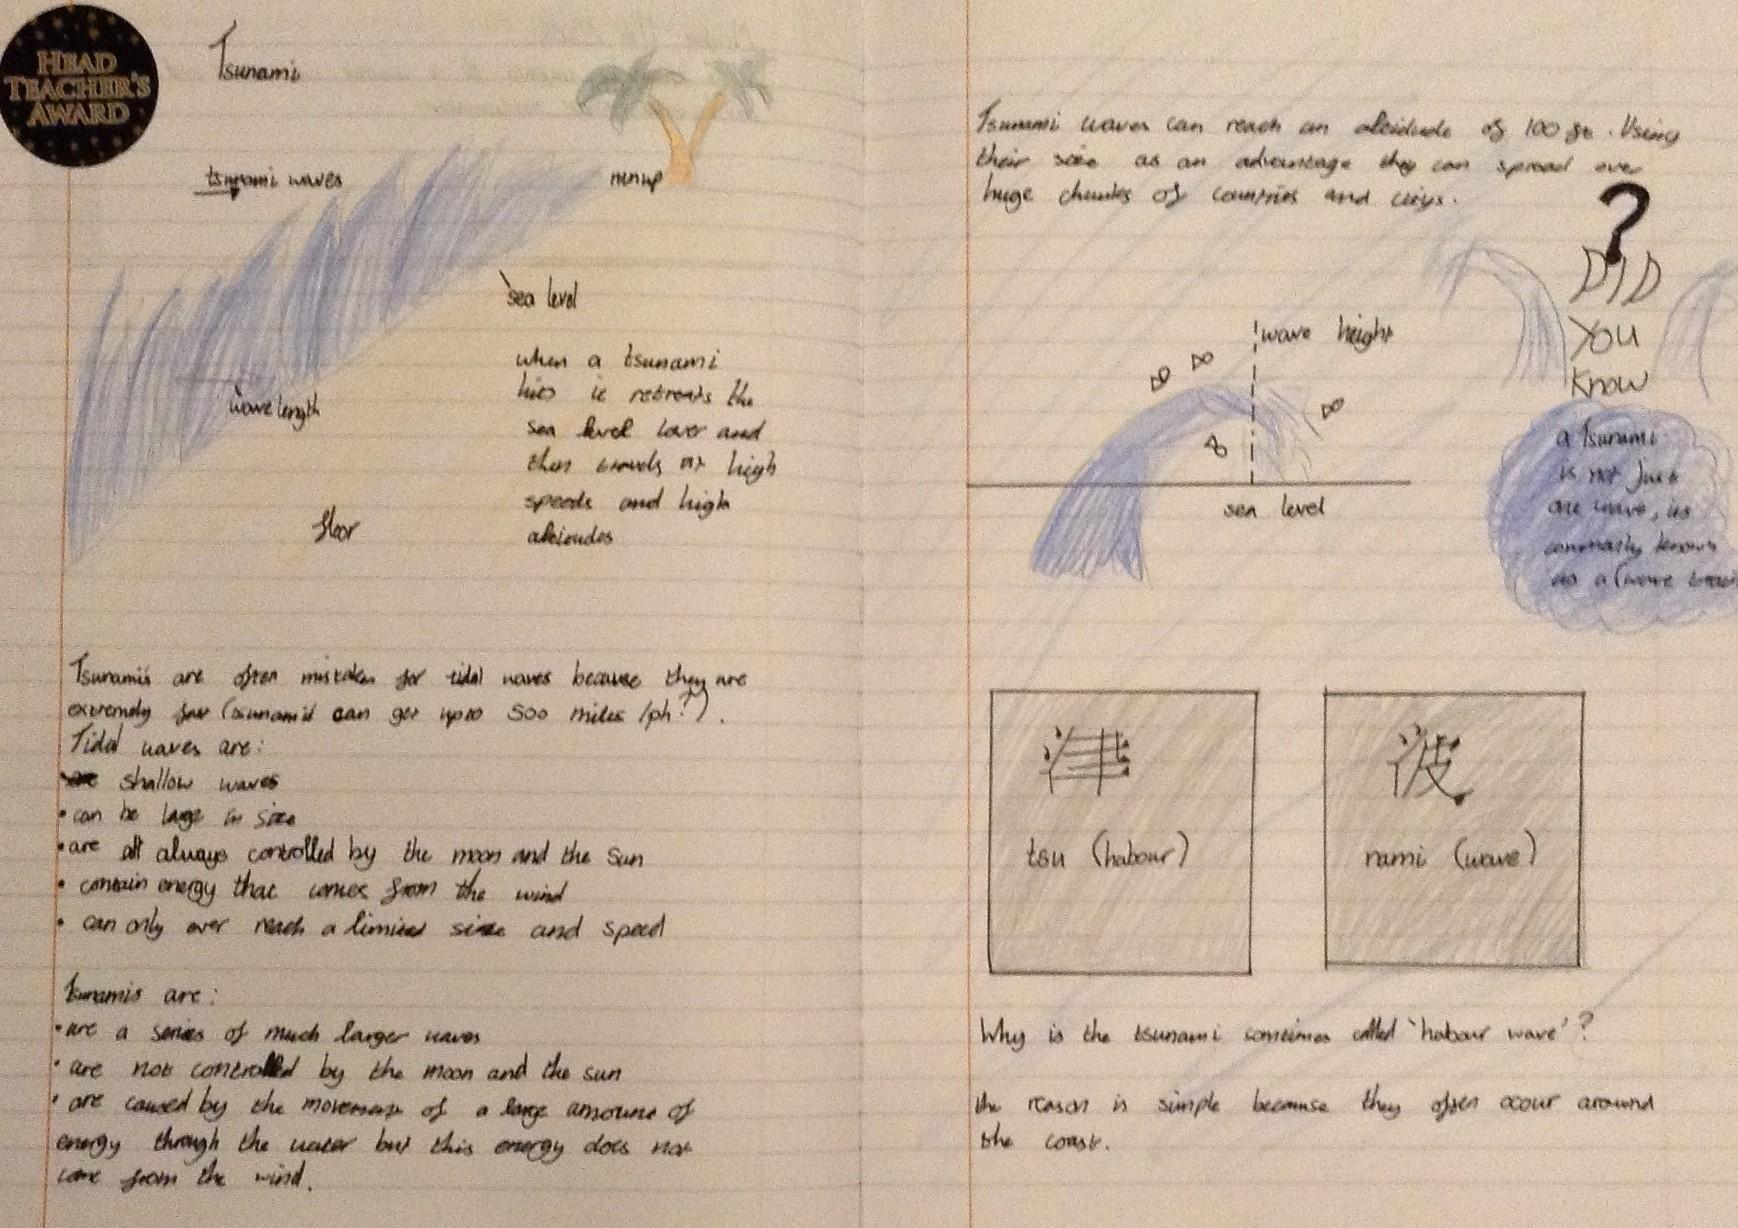 HEAD
TEACHER'S
AWARD
Tsunami
tsunami waves
runup
sea level
wave length
floor
when a tsunami
hits it retreats the
sea level lower and
then travels at high
speeds and high
altitudes
Tsunamis are often mistaken for tidal waves because they are
extremely fast (tsunamis can get upto 500 miles /ph?).
Tidal waves are:
shallow waves
• can be large in size
• are always controlled by the moon and the sun
• contain energy that comes from the wind
• can only ever reach a limited size and speed
Tsunamis are:
• are a series of much larger waves
• are not controlled by the moon and the sun
• are caused by the movement of a large amount of
energy through the water but this energy does not
come from the wind.
Tsunami waves can reach an altidude of 100 ft. Using
their size as an advantage they can spread over
huge chunks of countries and citys.
?
DID
You
Know
a Tsunami
is not just
one wave, its
commonly known
as a (wave train
wave height
sea level
津
tsu (habour)
波
nami (wave)
Why is the tsunami sometimes called 'habour wave'?
the reason is simple because they often occur around
the coast.